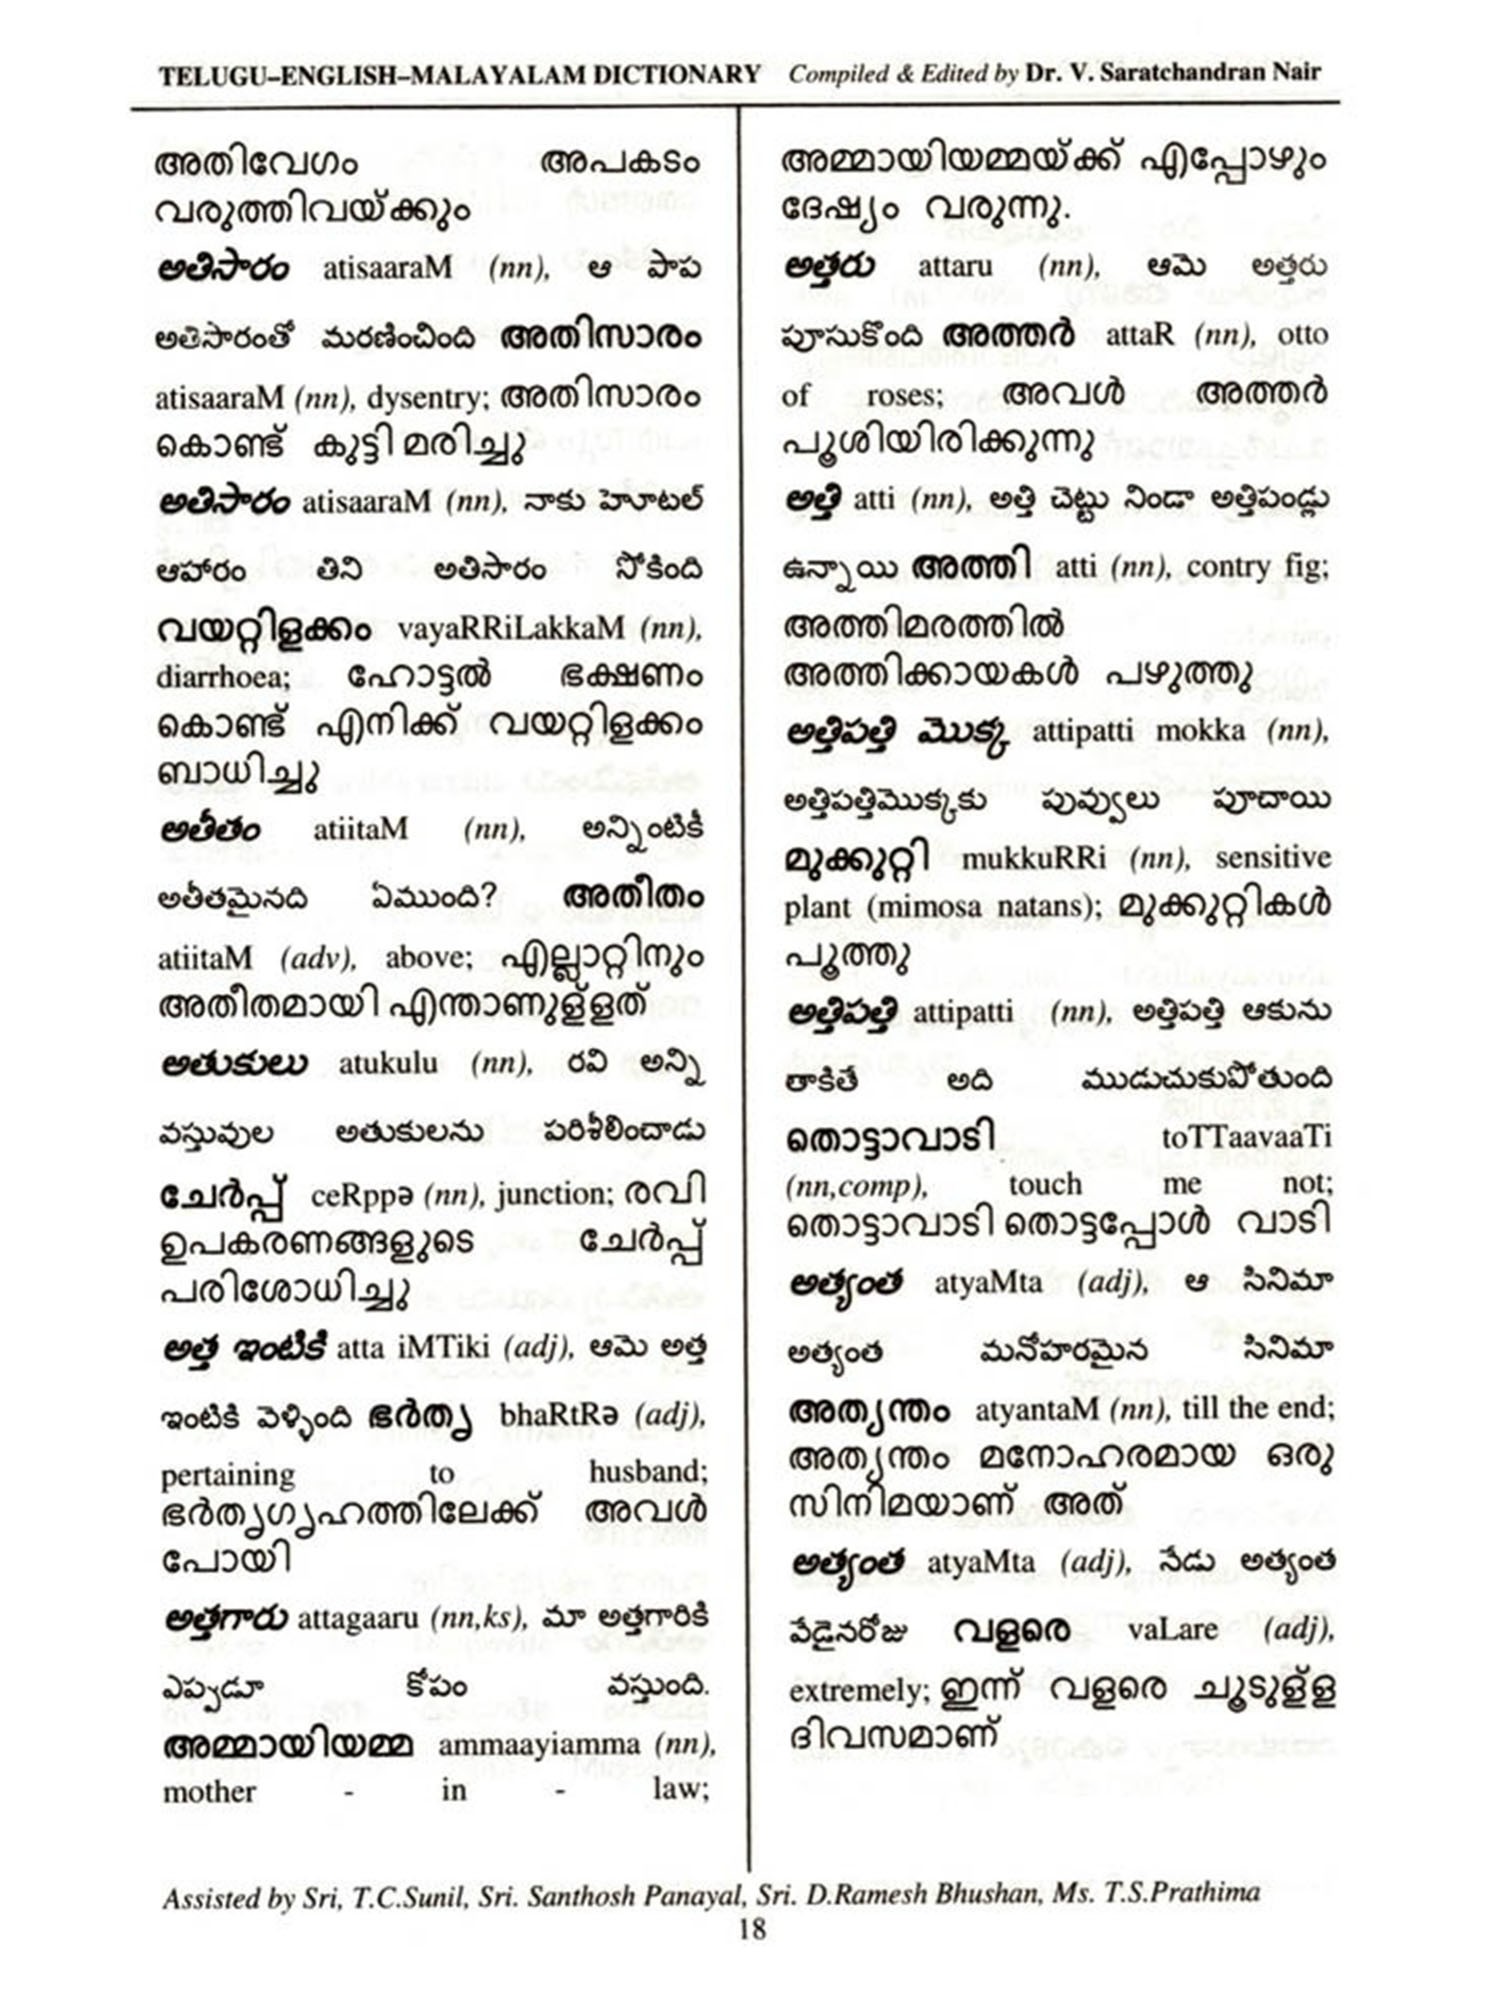 TELUGU–ENGLISH–MALAYALAM DICTIONARY Compiled & Edited by Dr. V. Saratchandran Nair
അതിവേഗം അപകടം
വരുത്തിവയ്ക്കും
అతిసారం atisaaraM (nn), ఆ పాప
అతిసారంతో మరణించింది അതിസാരം
atisaaraM (nn), dysentry; അതിസാരം
കൊണ്ട് കുട്ടി മരിച്ചു
అతిసారం atisaaraM (nn), నాకు హూటల్
ఆహారం తిని అతిసారం సోకింది
വയറ്റിളക്കം vayaRRiLakkaM (nn),
diarrhoea; ഹോട്ടൽ ഭക്ഷണം
കൊണ്ട് എനിക്ക് വയറ്റിളക്കം
ബാധിച്ചു
అతీతం atiitaM (nn), అన్నింటికీ
అతీతమైనది ఏముంది? അതീതം
atiitaM (adv), above; എല്ലാറ്റിനും
അതീതമായി എന്താണുള്ളത്
అతుకులు atukulu (nn), రవి అన్ని
వస్తువుల అతుకులను పరిశీలించాడు
ചേർപ്പ് ceRppə (nn), junction; രവി
ഉപകരണങ്ങളുടെ ചേർപ്പ്
പരിശോധിച്ചു
అత్త ఇంటికి atta iMTiki (adj), ఆమె అత్త
ఇంటికి వెళ్ళింది ഭർതൃ bhaRtRə (adj),
pertaining to husband;
ഭർതൃഗൃഹത്തിലേക്ക് അവൾ
പോയി
అత్తగారు attagaaru (nn,ks), మా అత్తగారికి
ఎప్పుడూ కోపం వస్తుంది.
അമ്മായിയമ്മ ammaayiamma (nn),
mother - in - law;
അമ്മായിയമ്മയ്ക്ക് എപ്പോഴും
ദേഷ്യം വരുന്നു.
అత్తరు attaru (nn), ఆమె అత్తరు
పూసుకొంది അത്തർ attaR (nn), otto
of roses; അവൾ അത്തർ
പൂശിയിരിക്കുന്നു
అత్తి atti (nn), అత్తి చెట్టు నిండా అత్తిపండ్లు
ఉన్నాయి അത്തി atti (nn), contry fig;
അത്തിമരത്തിൽ
അത്തിക്കായകൾ പഴുത്തു
అత్తిపత్తి మొక్క attipatti mokka (nn),
అత్తిపత్తిమొక్కకు పువ్వులు పూచాయి
മുക്കുറ്റി mukkuRRi (nn), sensitive
plant (mimosa natans); മുക്കുറ്റികൾ
പൂത്തു
అత్తిపత్తి attipatti (nn), అత్తిపత్తి ఆకును
తాకితే అది ముడుచుకుపోతుంది
തൊട്ടാവാടി toTTaavaaTi
(nn,comp), touch me not;
തൊട്ടാവാടി തൊട്ടപ്പോൾ വാടി
అత్యంత atyaMta (adj), ఆ సినిమా
అత్యంత మనోహరమైన సినిమా
അത്യന്തം atyantaM (nn), till the end;
അത്യന്തം മനോഹരമായ ഒരു
സിനിമയാണ് അത്
అత్యంత atyaMta (adj), నేడు అత్యంత
వేడైనరోజు വളരെ vaLare (adj),
extremely; ഇന്ന് വളരെ ചൂടുള്ള
ദിവസമാണ്
Assisted by Sri, T.C.Sunil, Sri. Santhosh Panayal, Sri. D.Ramesh Bhushan, Ms. T.S.Prathima
18